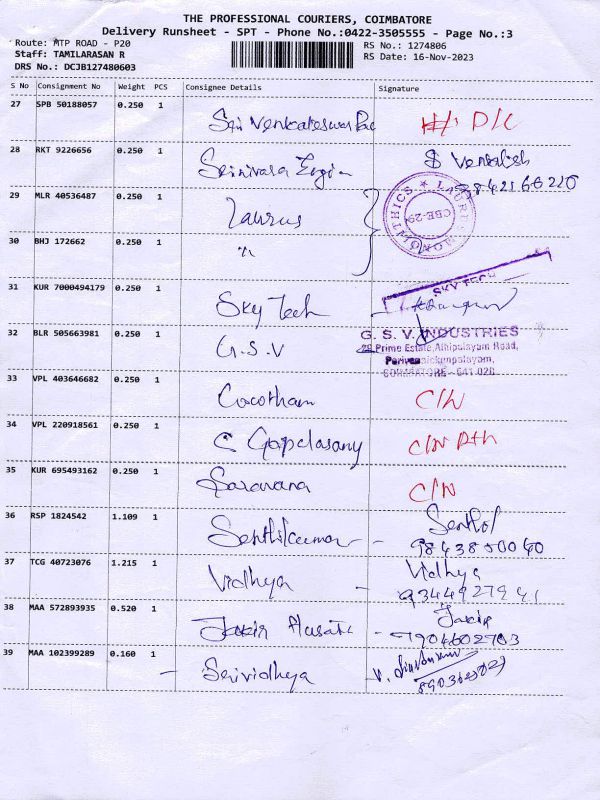 THE PROFESSIONAL COURIERS, COIMBATORE
Delivery Runsheet - SPT - Phone No.:0422-3505555 - Page No.:3
Route: MTP ROAD - P20
Staff: TAMILARASAN R
DRS No.: DCJB127480603
RS No.: 1274806
RS Date: 16-Nov-2023
S No Consignment No Weight PCS Consignee Details Signature
27 SPB 50188057 0.250 1
Sri Venkateswar
28 RKT 9226656 0.250 1
Srinivasa S Venkatesh
29 MLR 40536487 0.250 1
Laurus
CBE-29
30 BHJ 172662 0.250 1
"
31 KUR 7000494179 0.250 1
Sky Tech SKY TECH
32 BLR 505663981 0.250 1
G.S.V G. S. V. INDUSTRIES
Prime Estate, Athipalayam Road,
Periyanaickenpalayam,
COIMBATORE - 641 020
33 VPL 403646682 0.250 1
C/N
34 VPL 220918561 0.250 1
C/N
35 KUR 695493162 0.250 1
Saravana C/N
36 RSP 1824542 1.109 1
Senthilkumar -
37 TCG 40723076 1.215 1
Vidhya - Vidhya
9344927941
38 MAA 572893935 0.520 1
Jakir - Jakir
7904602703
39 MAA 102399289 0.160 1
- Srividhya